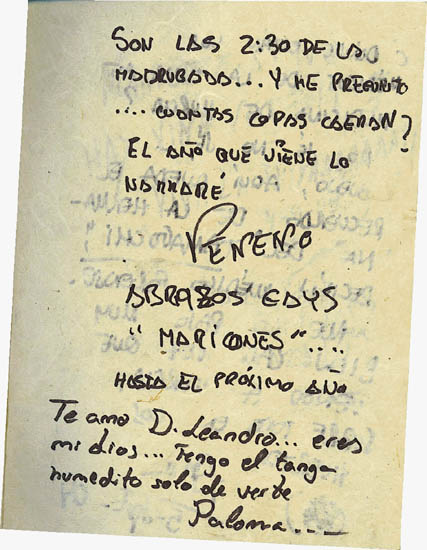 SON LAS 2:30 DE LA
MADRUGADA... Y ME PREGUNTO
.... CUANTAS COPAS CAERAN?
EL AÑO QUE VIENE LO
NARRARÉ
ABRAZOS EDYS
"MARICONES"....
HASTA EL PRÓXIMO AÑO
Te amo D. Leandro... eres
mi dios... Tengo el tanga
humedito solo de verte
Paloma...